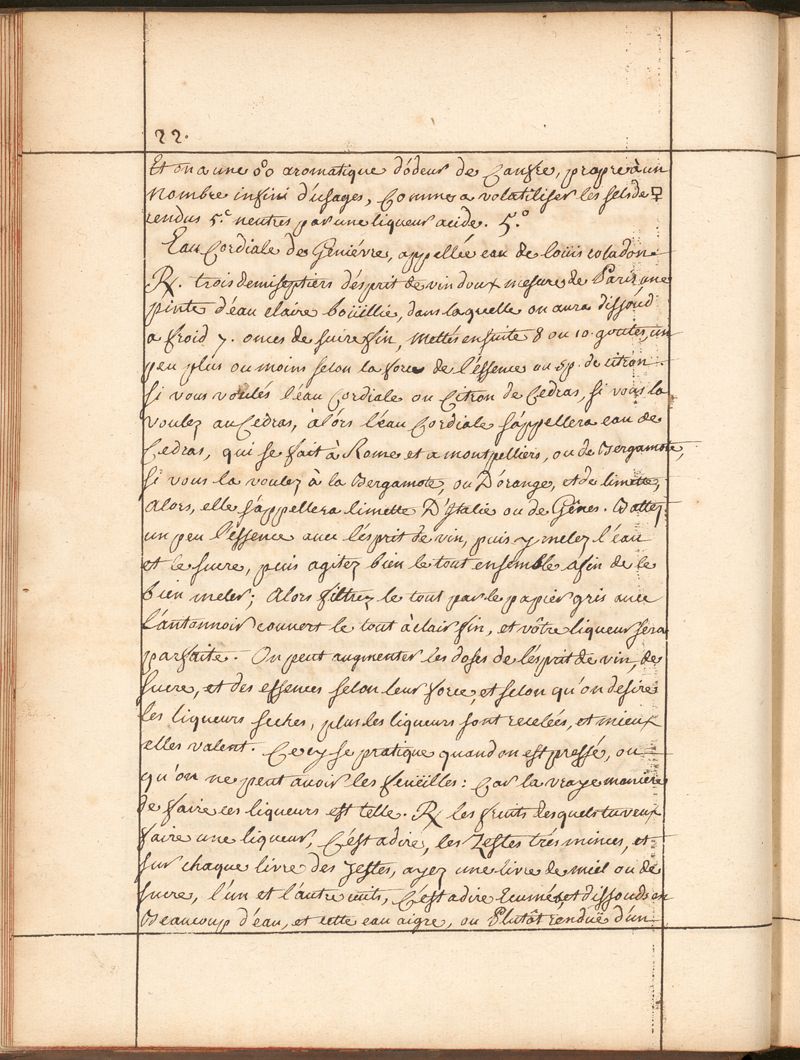 22.
Et on a une o°o aromatique d'ódeur de Canfre, propre à un
Nombre infini d'usages, Comme a volatiliser les sels de ♀
rendus 5.e neutres par une liqueur acide. 5.°
Eau Cordiale de Geniévre, appellée eau de loüis coladon.
℞. trois demiseptiers d'ésprit de vin doux mesure de Paris, une
pinte d'éau claire boüillie, dans laquelle on aura dissoud
a froid 7. onces de sucre fin, Mettés ensuite 8 ou 10. goutes, un
peu plus ou moins selon la force de l'éssence ou sp. de citron.
Si vous voulés l'éau Cordiale ou Citron de Cedras, si vous la
voulez au Cedras, àlórs l'éau Cordiale s'appellera eau de
Cedras, qui se fait à Rome et a montpelliers, ou de Bergamote,
Si vous la voulez à la Bergamote, ou D'órange, et de limette,
Alors, elle s'appellera limette D'Italie ou de Gênes. Battez
un peu l'éssence avec l'ésprit de vin, puis y melez l'éau
et le sucre, puis agitez bien le tout ensemble afin de le
bien meler; Alors filtrez le tout par le papier gris avec
l'antonnoir couvert le tout à clair fin, et vôtre liqueur sera
parfaite. On peut augmenter les doses de l'ésprit de vin, de
Sucre, et des essences selon leur force, et selon qu'on desire
les liqueurs seches, plus les liqueurs sont recelées, et mieux
elles valent. Cecy se pratique quand on est pressé, ou
qu'on ne peut avoir les feuëilles: Car la vraye maniere
de faire ces liqueurs est telle. ℞ les fruits desquels tu veux
faire une liqueur, C'est a dire, les Zestes trés minces, et
sur chaque livre des zestes, ayez une livre de miel ou de
sucre, l'un et l'autre cuits, C'est a dire Ecumés, et dissouds en
Beaucoup d'eau, et cette eau aigre, ou Plutôt renduë d'un